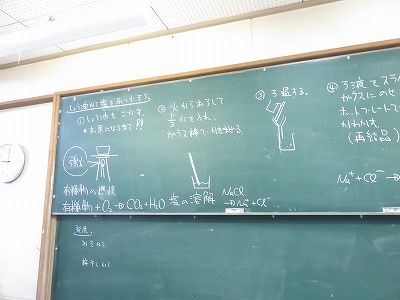 しょう油から塩をとり出そう。
①しょう油を こがす。
※炭になるまで!!
強火
有機物の燃焼
有機物+O₂→CO₂+H₂O
② 火からおろして
1/3 水を入れ、
ガラス棒でかきまぜる。
塩の溶解
NaCl
→Na⁺+Cl⁻
③ ろ過する。
④ ろ液をスライド
ガラスにのせ
ホットプレートで
(再結晶)
Na⁺+Cl⁻→